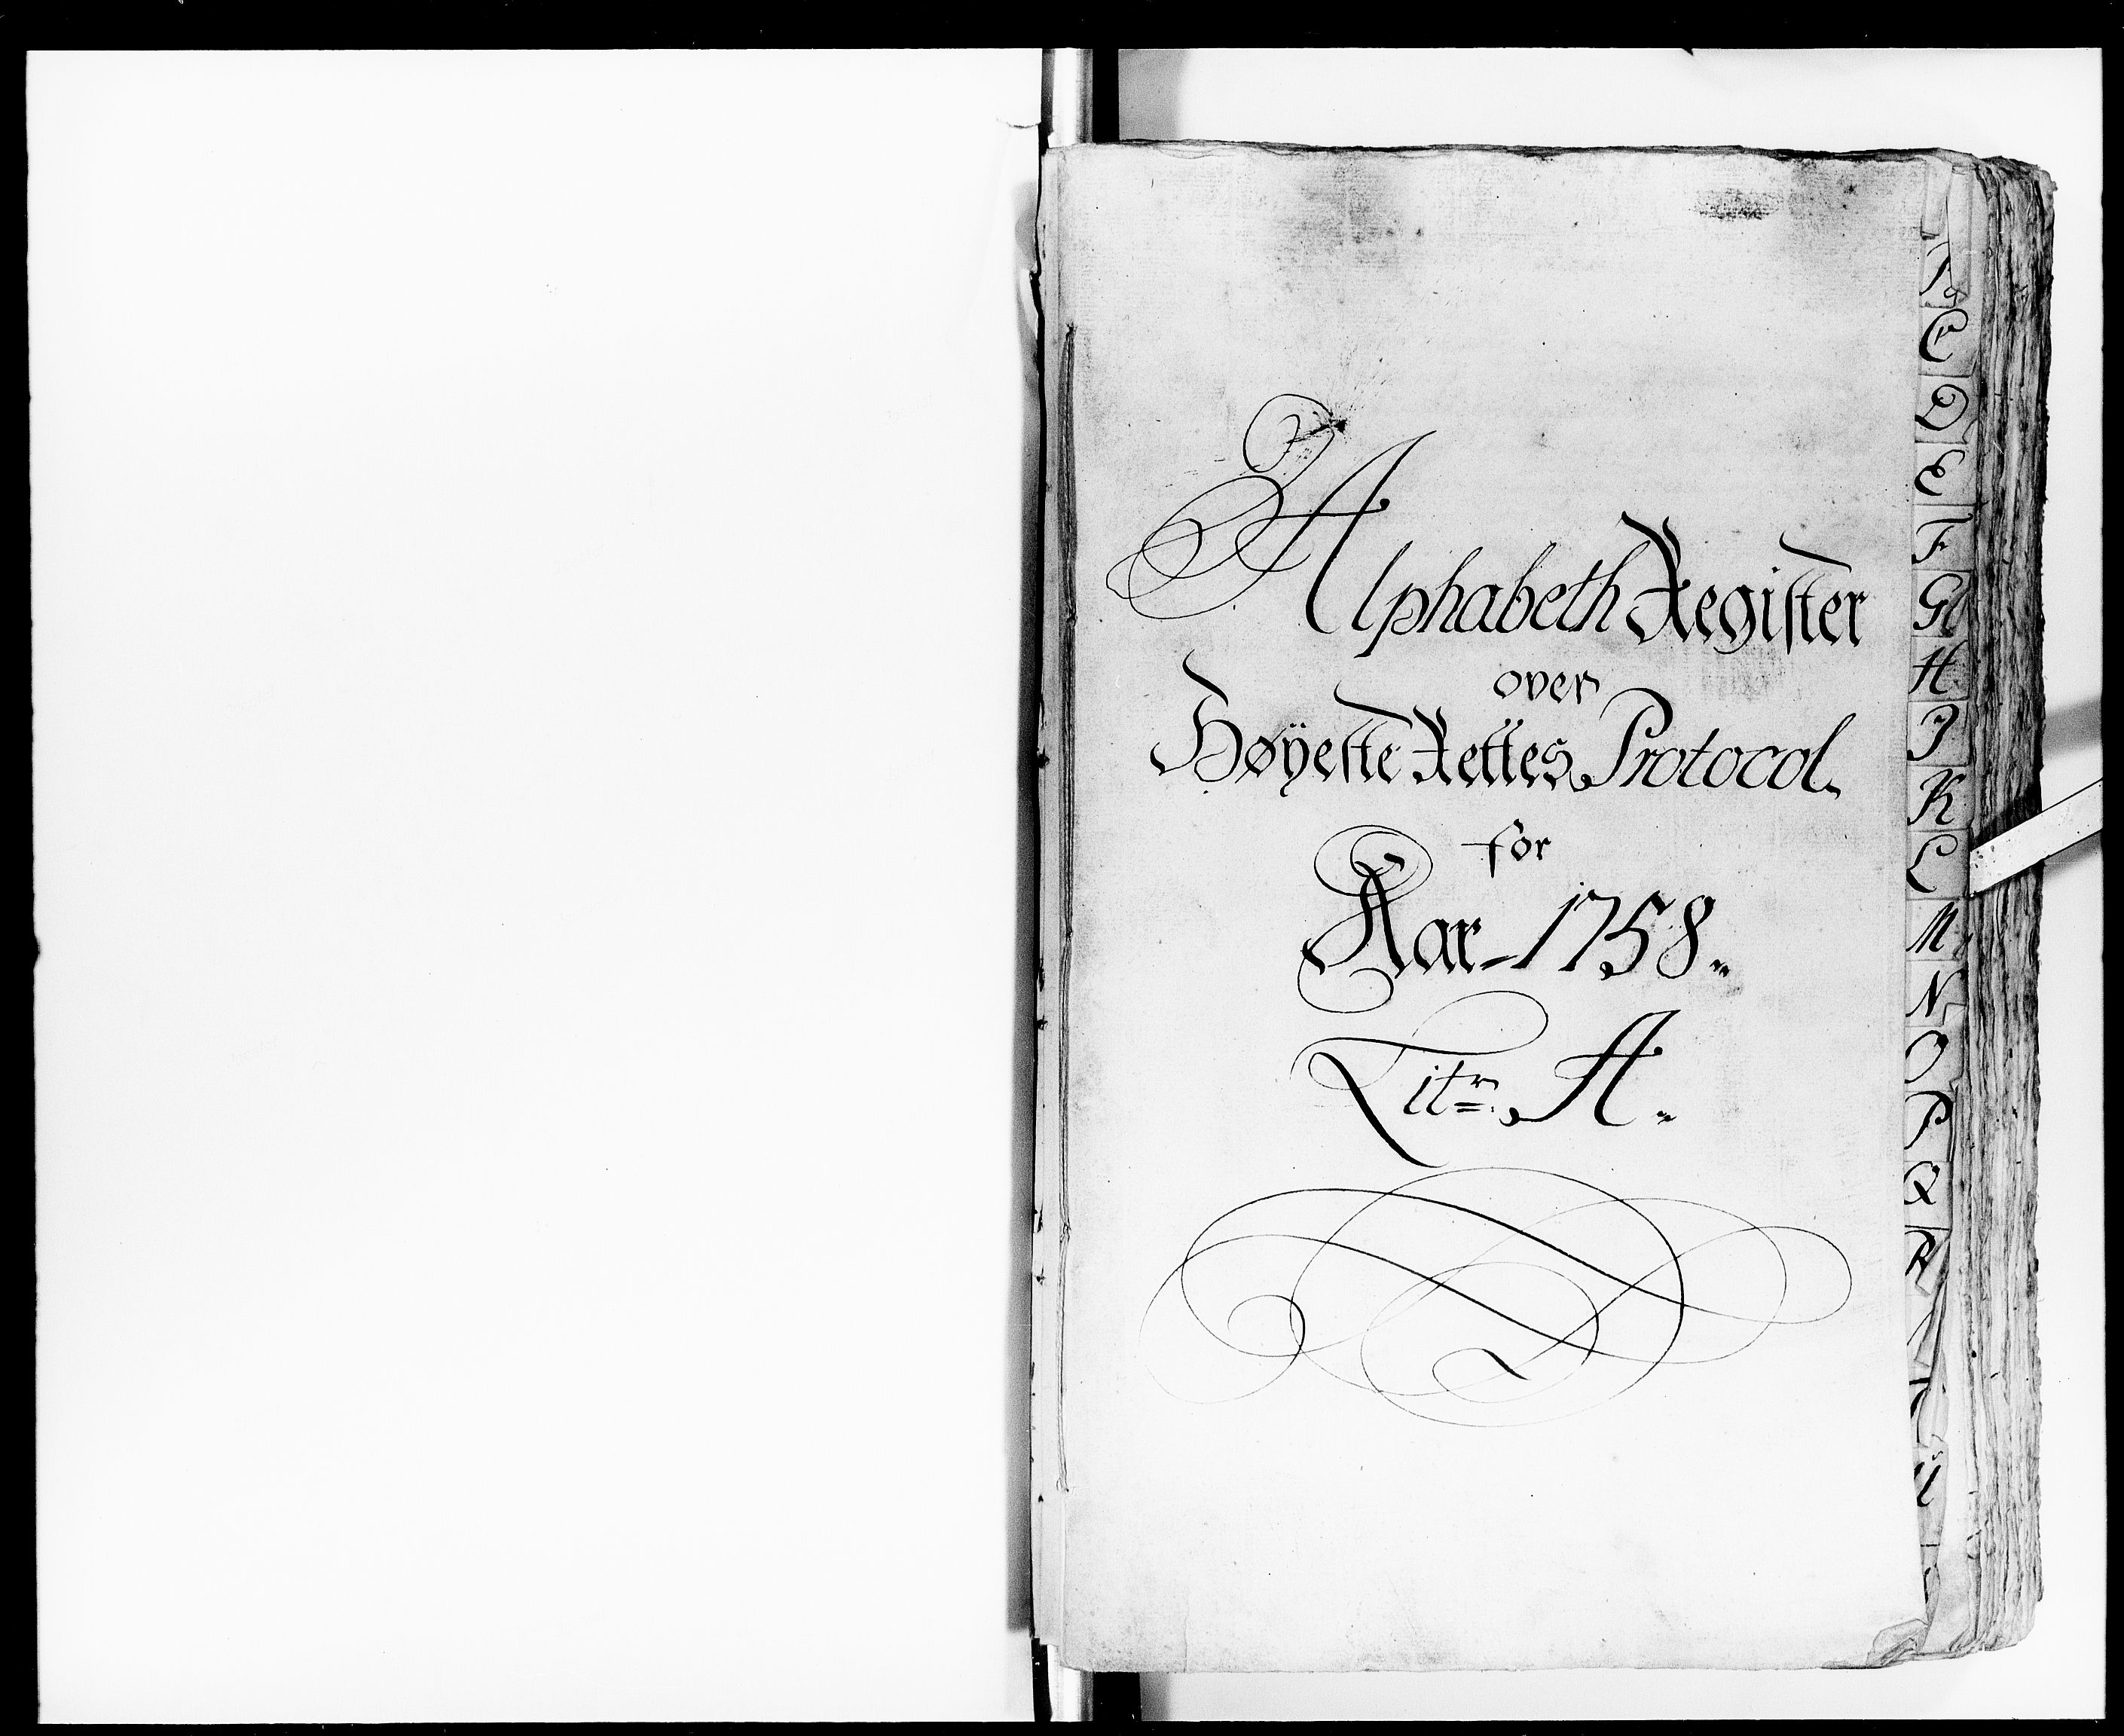 Alphabeth Register
over
Høÿeste Rettes Protocol.
for
Aar 1758.
Litr. A.
C
D
E
F
G
H
J
K
L
M
N
O
P
Q
R
U